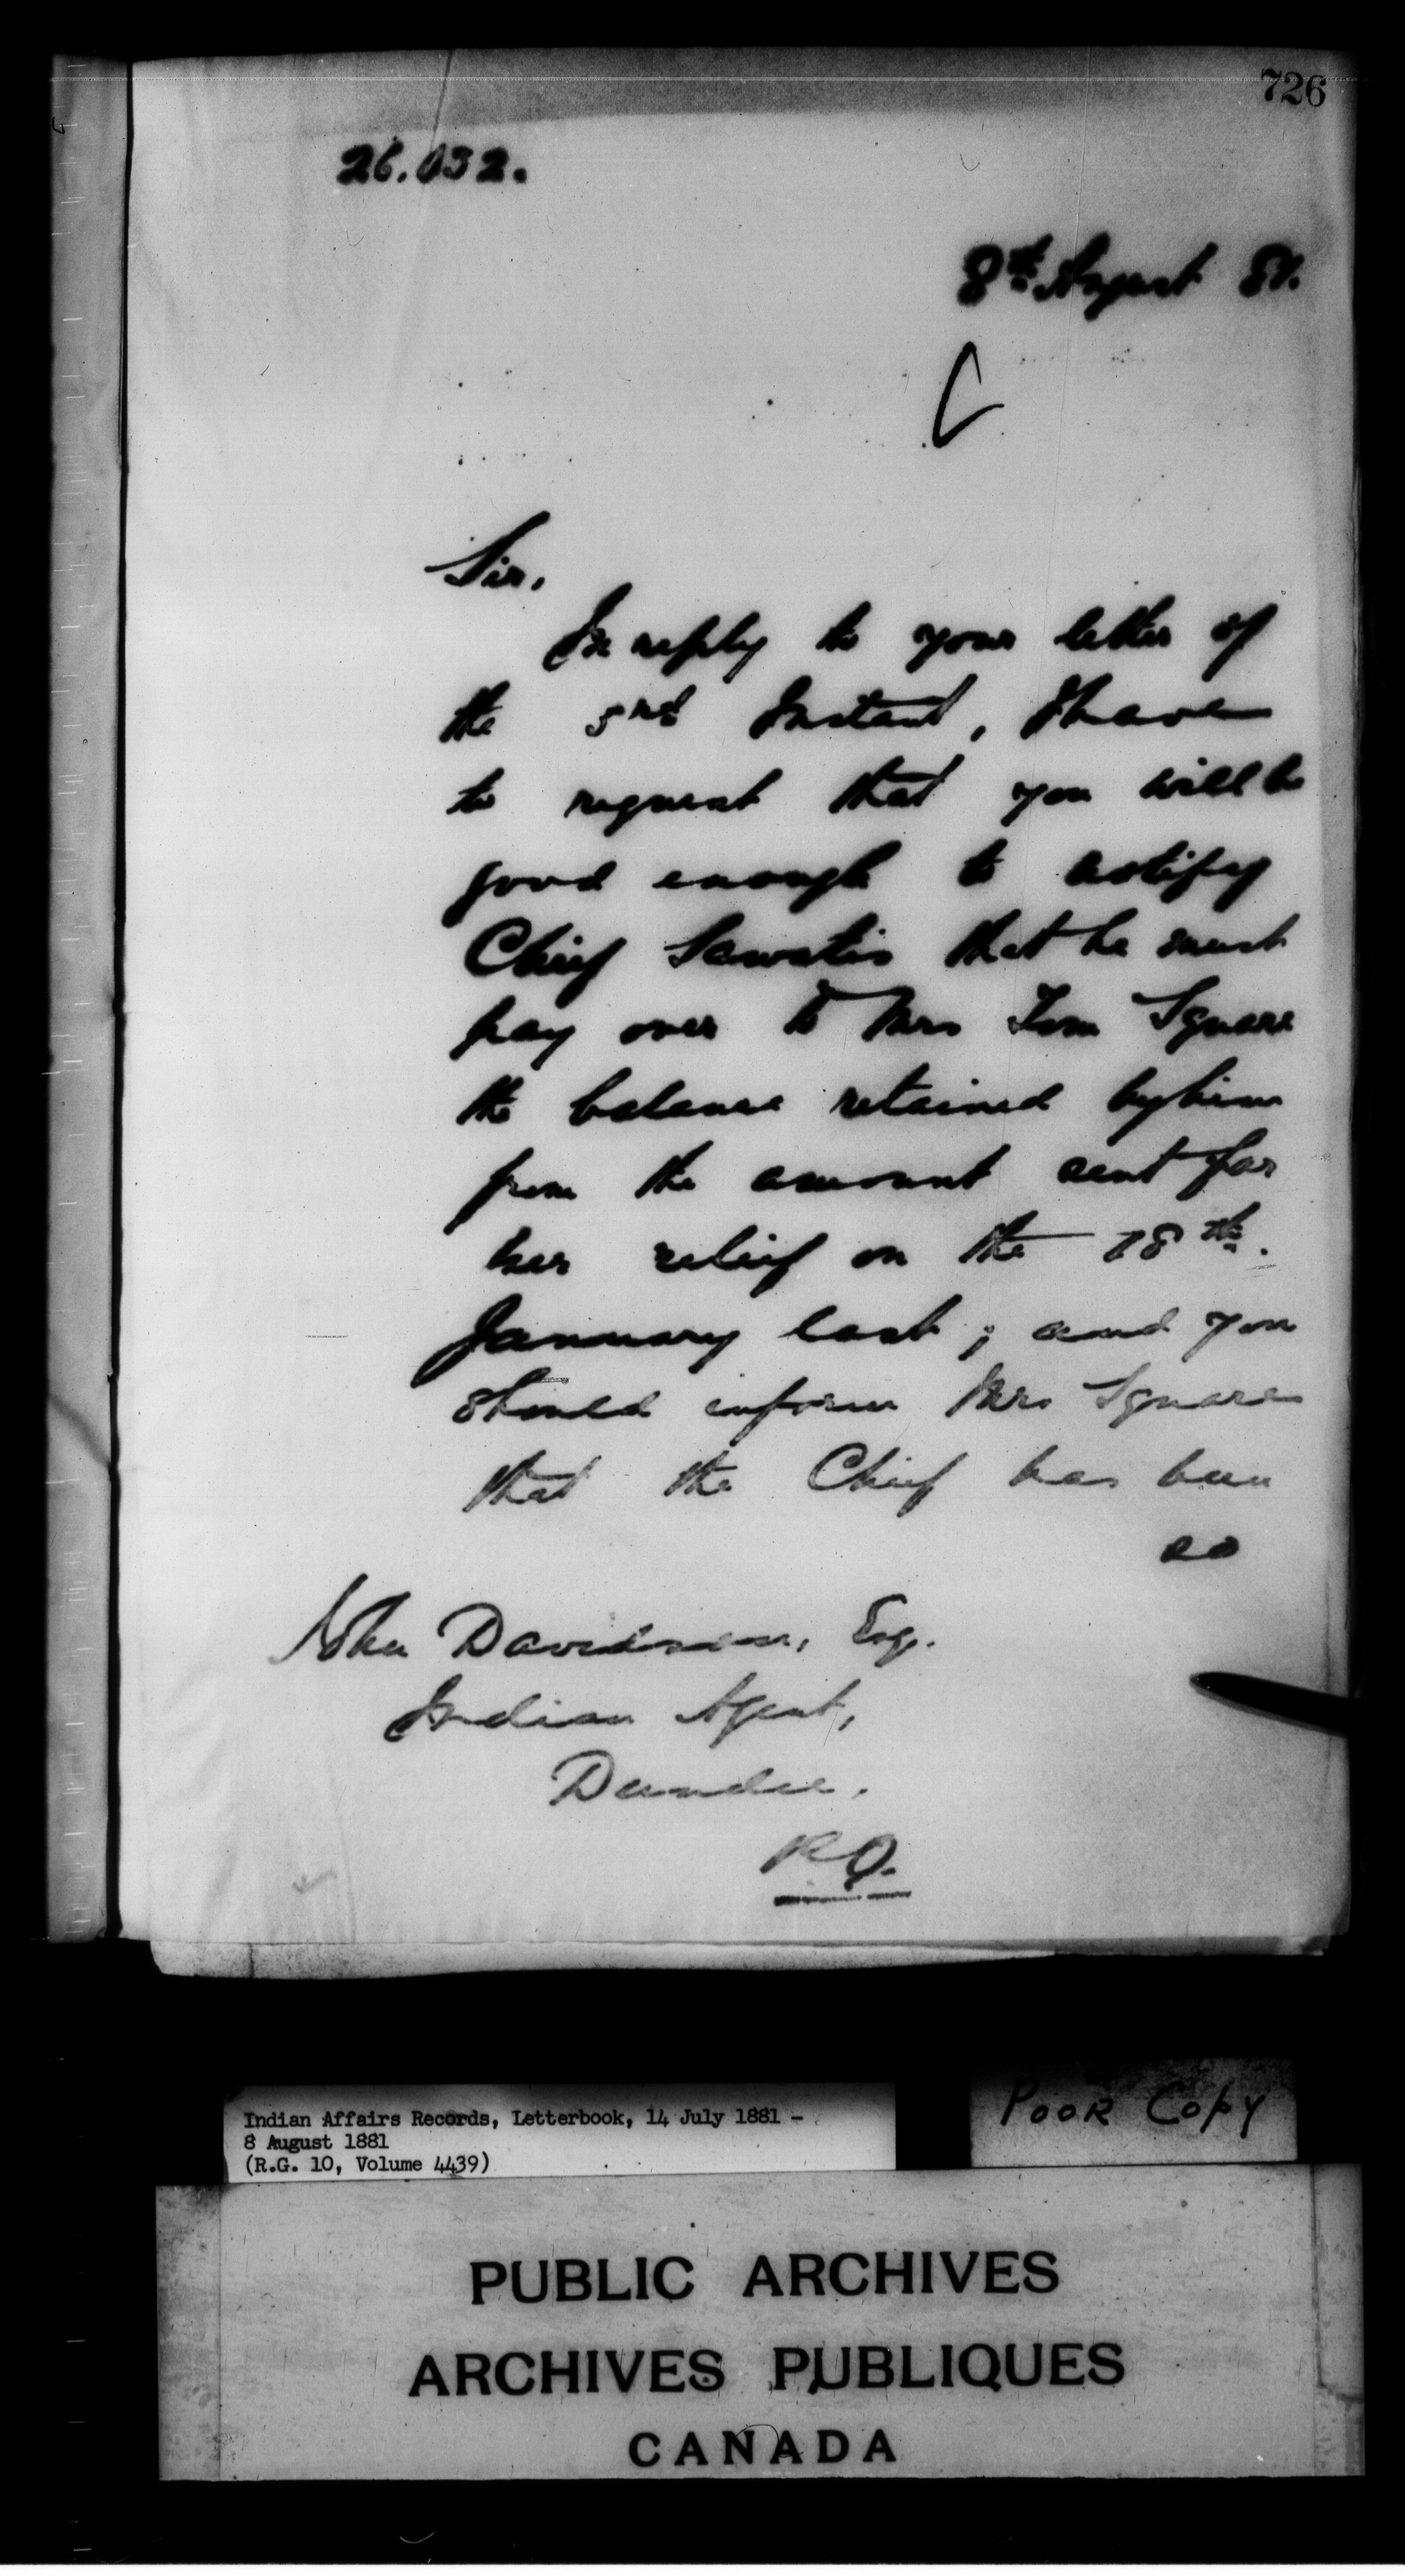 726
26.032.
8th August 81.
Sir,
In reply to your letter of
the 3rd Instant, I have
to request that you will be
good enough to notify
Chief Sawatis that he must
pay over to Mrs Tom Square
the balance retained by him
from the amount sent for
her relief on the 18th.
January last; and you
should inform Mrs Square
that the Chief has been
so
John Davidson, Esq.
Indian Agent,
Dundee.
P.Q.
Indian Affairs Records, Letterbook, 14 July 1881 -
8 August 1881
(R.G. 10, Volume 4439)
POOR COPY
PUBLIC ARCHIVES
ARCHIVES PUBLIQUES
CANADA